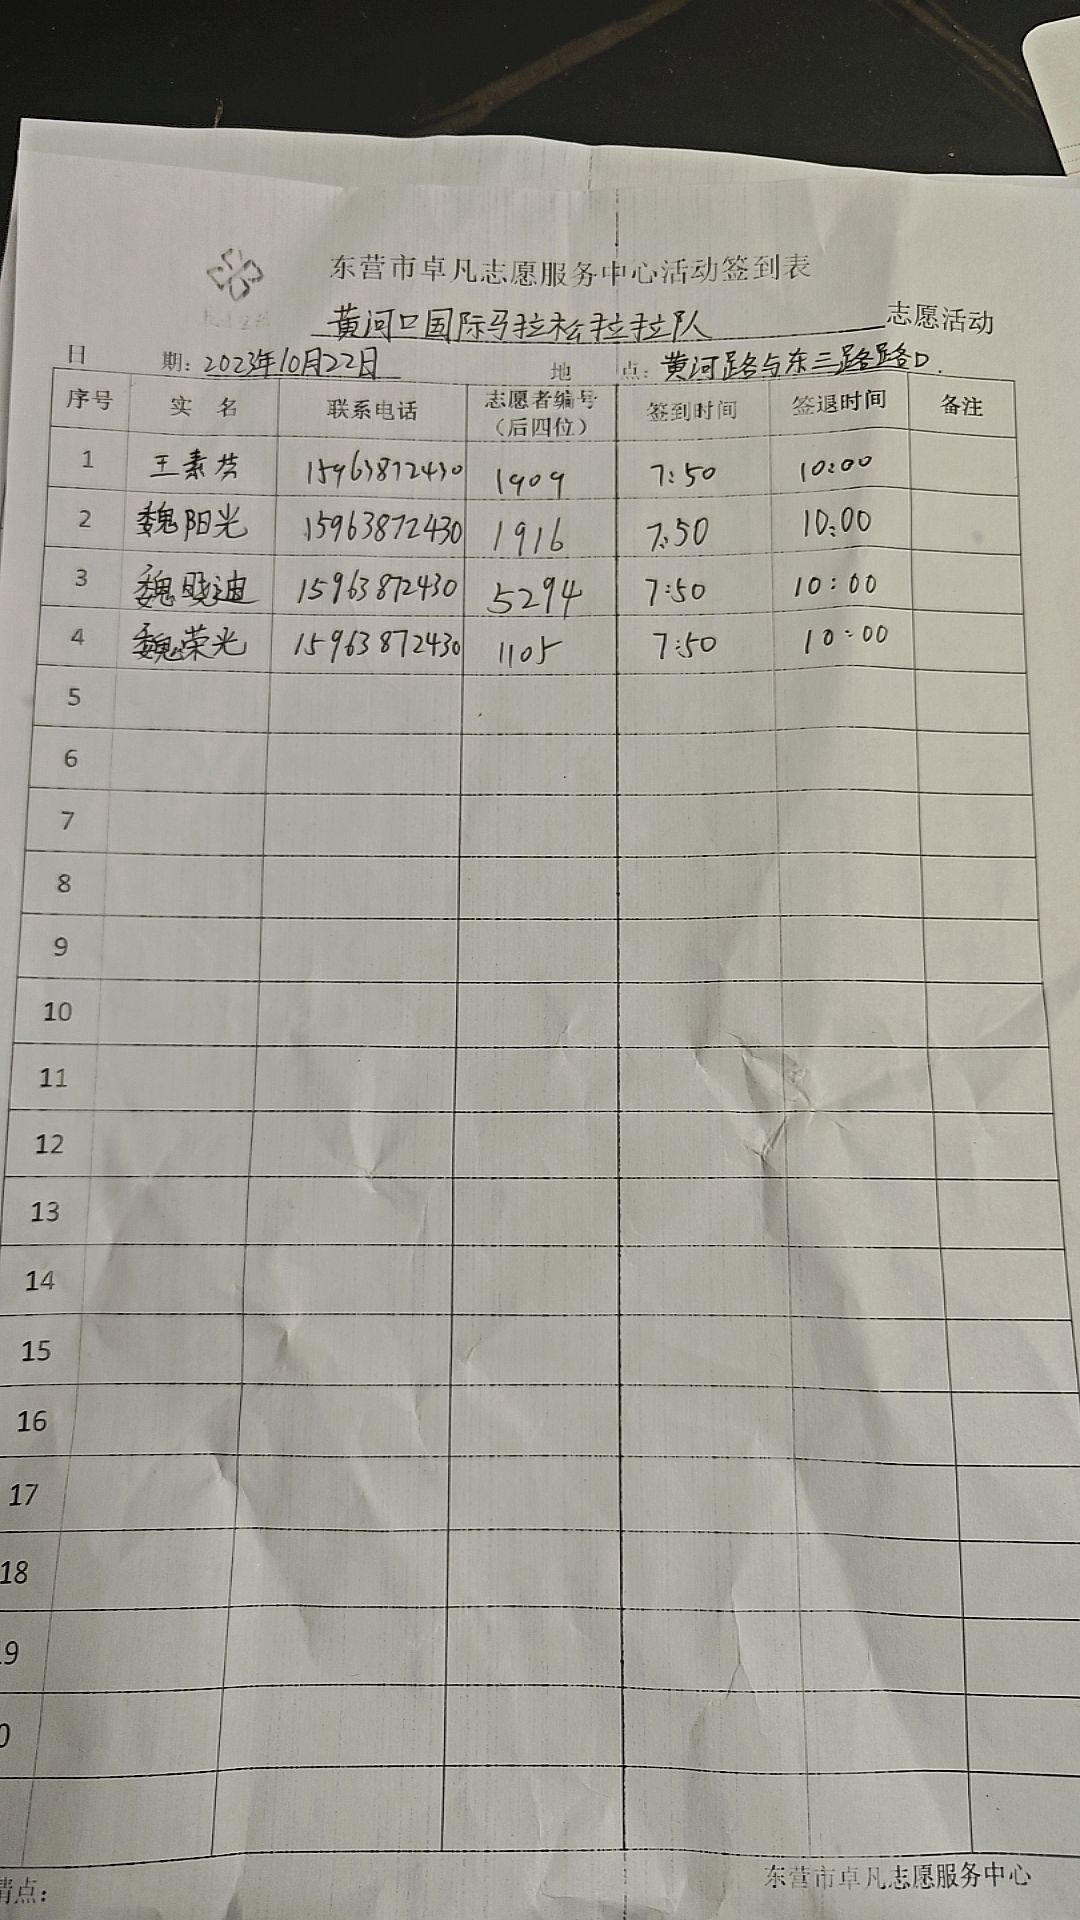 东营市卓凡志愿服务中心活动签到表
黄河口国际马拉松拉拉队 志愿活动
日 期：2023年10月22日 地 点：黄河路与东三路路口.
序号 实 名 联系电话 志愿者编号（后四位） 签到时间 签退时间 备注
1 王素芬 15963872430 1909 7:50 10:00
2 魏阳光 15963872430 1916 7:50 10:00
3 魏晓迪 15963872430 5294 7:50 10:00
4 魏荣光 15963872430 1105 7:50 10:00
5
6
7
8
9
10
11
12
13
14
15
16
17
18
9
0
东营市卓凡志愿服务中心
清点：